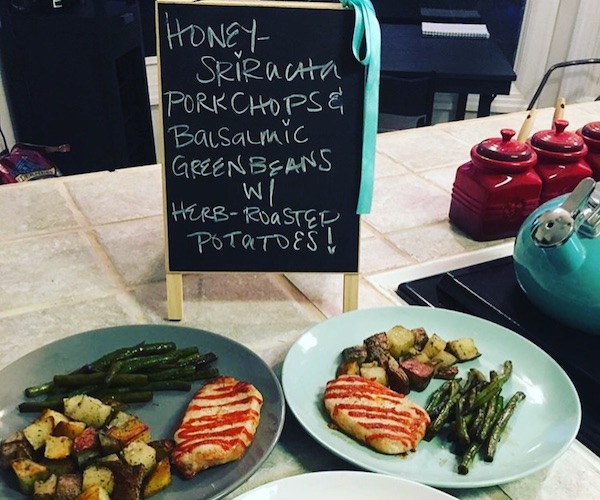 HONEY-
SRIRACHA
PORK CHOPS &
BALSALMIC
GREENBEANS
W/
HERB-ROASTED
POTATOES!